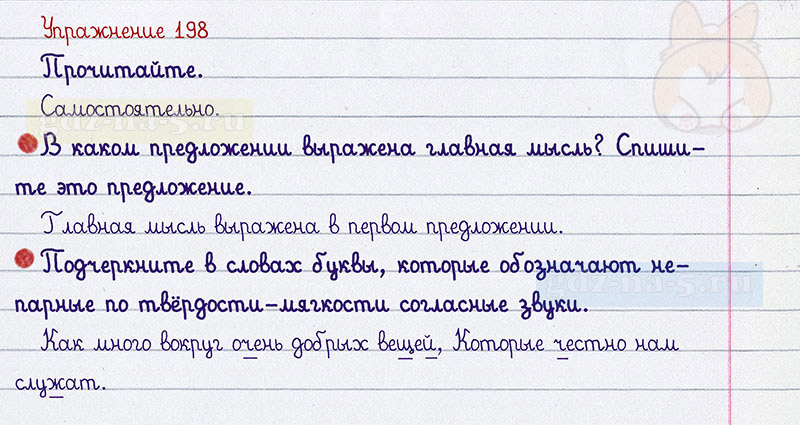 Упражнение 198
Прочитайте.
Самостоятельно.
gdz-na-5.ru
В каком предложении выражена главная мысль? Спиши-
те это предложение.
Главная мысль выражена в первом предложении.
Подчеркните в словах буквы, которые обозначают не-
gdz-na-5.ru
парные по твёрдости-мягкости согласные звуки.
Как много вокруг очень добрых вещей, Которые честно нам
служат.